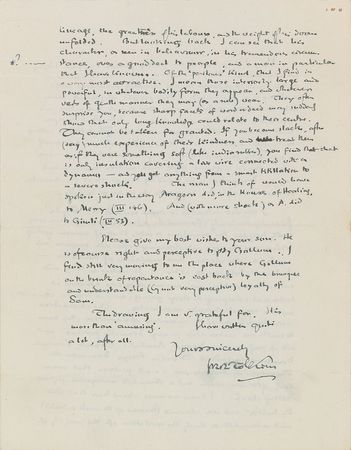 lineage, the greatness of his labours, and the weight of his doom
unfolded. But looking back I can see that his
character, as seen in behaviour, in his tremendous circum-
stance, even a grandeur to people, and a man in particular
that I have known. Of the 'perilous' kind, that I find in
a way most attractive. I mean those interiorly large and
powerful, in whatever bodily form they appear, and whatever
veils of gentle manner they may (or not) wear. They often
surprise you, because sharp facets of word or deed may sudden
show that only long knowledge could relate to their centre.
They cannot be taken for granted. If you become slack, after
(say) much experience of their kindness and treat them
as if they were something soft (like indiarubber), you find that
is only insulation covering a law wire connected with a
dynamo — and you get anything from a small tickle to
a severe shock. The man I think of would have
spoken just in the way Aragorn did, in the House of Healing,
to Merry (III 146). And (with more shock) as A did
to Gimli (III 53).
Please give my best wishes to your son. He
is of course right and perceptive to pity Gollum. I
find still very moving to me the place where Gollum
on the brink of repentance is cast back by the brusque
and understandable (if not very perceptive) loyalty of
Sam.
The drawing I am v. grateful for. It is
more than amusing. I have written quite
a lot, after all.
Yours sincerely
JRR Tolkien